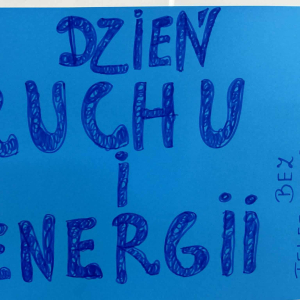 DZIEŃ
RUCHU
i
ENERGii
BEZ